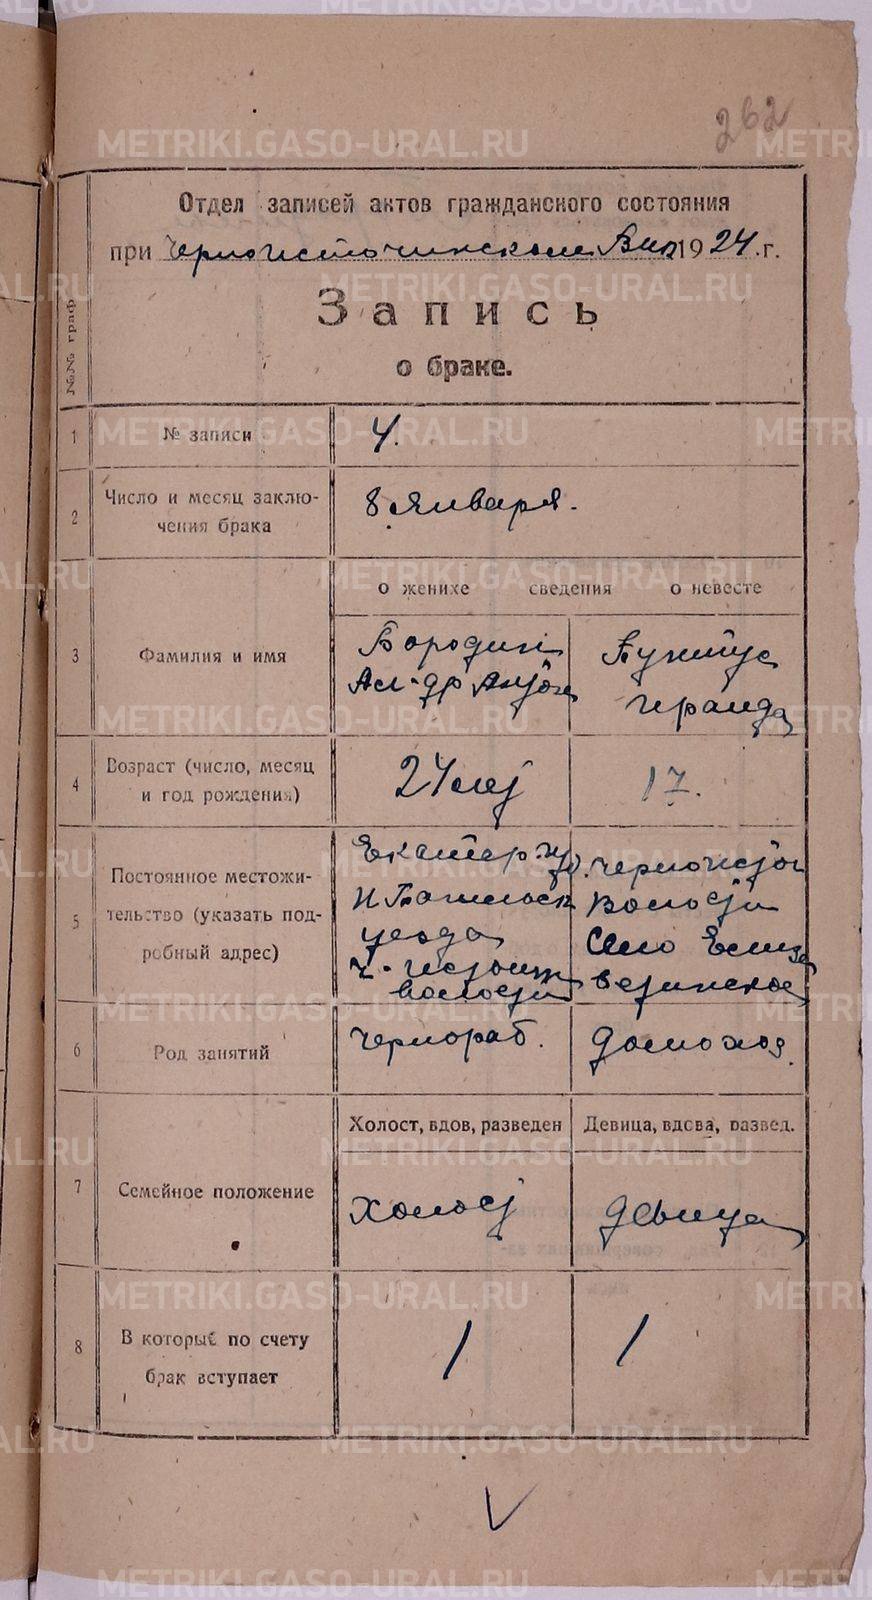 262
Отдел записей актов гражданского состояния
при Черноисточинском Вик 1924 г.
№№ граф
Запись
о браке.
1 № записи 4.
2 Число и месяц заключения брака 8 Января.
о женихе сведения о невесте
3 Фамилия и имя
Бородин
Ал-др
4 Возраст (число, месяц и год рождения) 24 лет 17.
5 Постоянное местожительство (указать подробный адрес)
Екатер. губ.
Н Тагильск
уезда
Ч-источин
волости
Черноисточ
Волости
Село Елиза
ветинское
6 Род занятий Чернораб. Домохоз
Холост, вдов, разведен Девица, вдова, развед.
7 Семейное положение Холост Девица
8 В который по счету брак вступает 1 1
METRIKI.GASO-URAL.RU